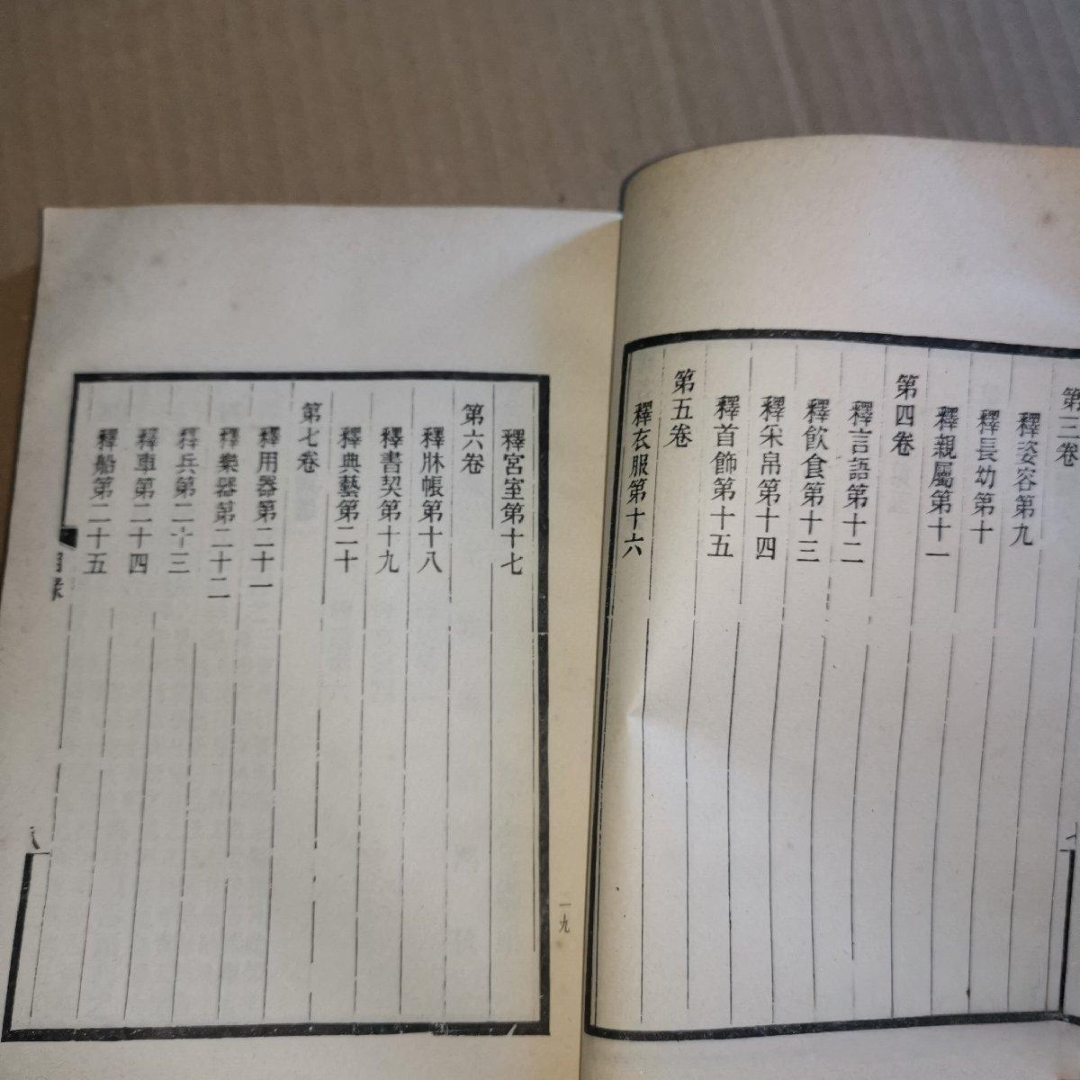 第三卷
釋姿容第九
釋長幼第十
釋親屬第十一
第四卷
釋言語第十二
釋飲食第十三
釋采帛第十四
釋首飾第十五
第五卷
釋衣服第十六
釋宮室第十七
第六卷
釋牀帳第十八
釋書契第十九
釋典藝第二十
第七卷
釋用器第二十一
釋樂器第二十二
釋兵第二十三
釋車第二十四
釋船第二十五
目錄
八
一九